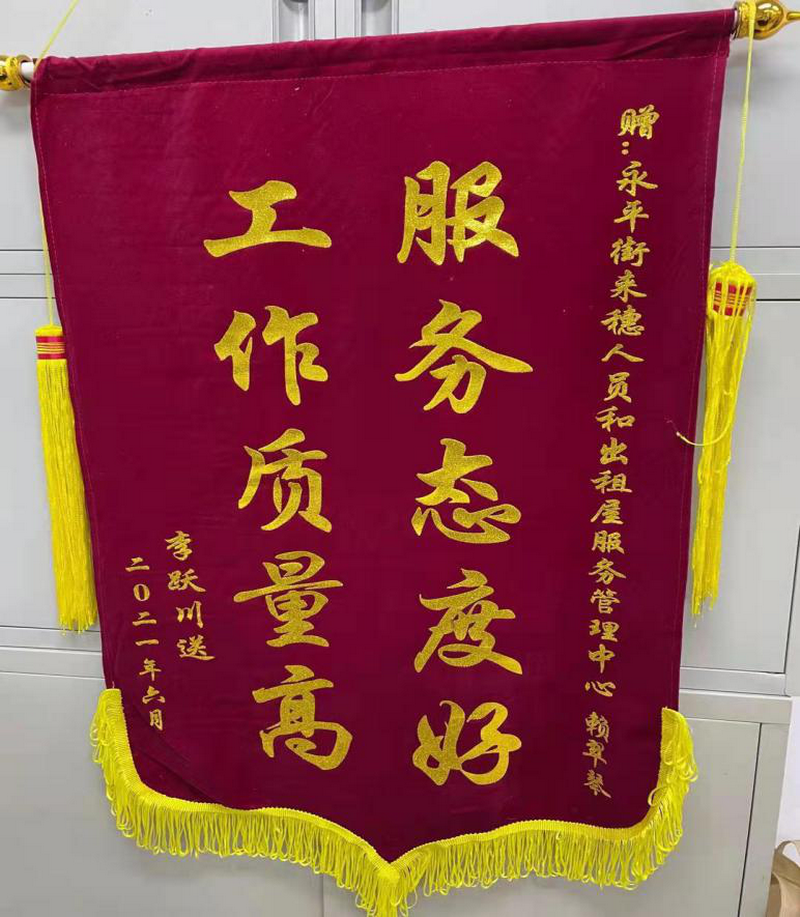 赠：永平街来穗人员和出租屋服务管理中心 赖翠琴
服务态度好
工作质量高
李跃川送
二〇二一年六月